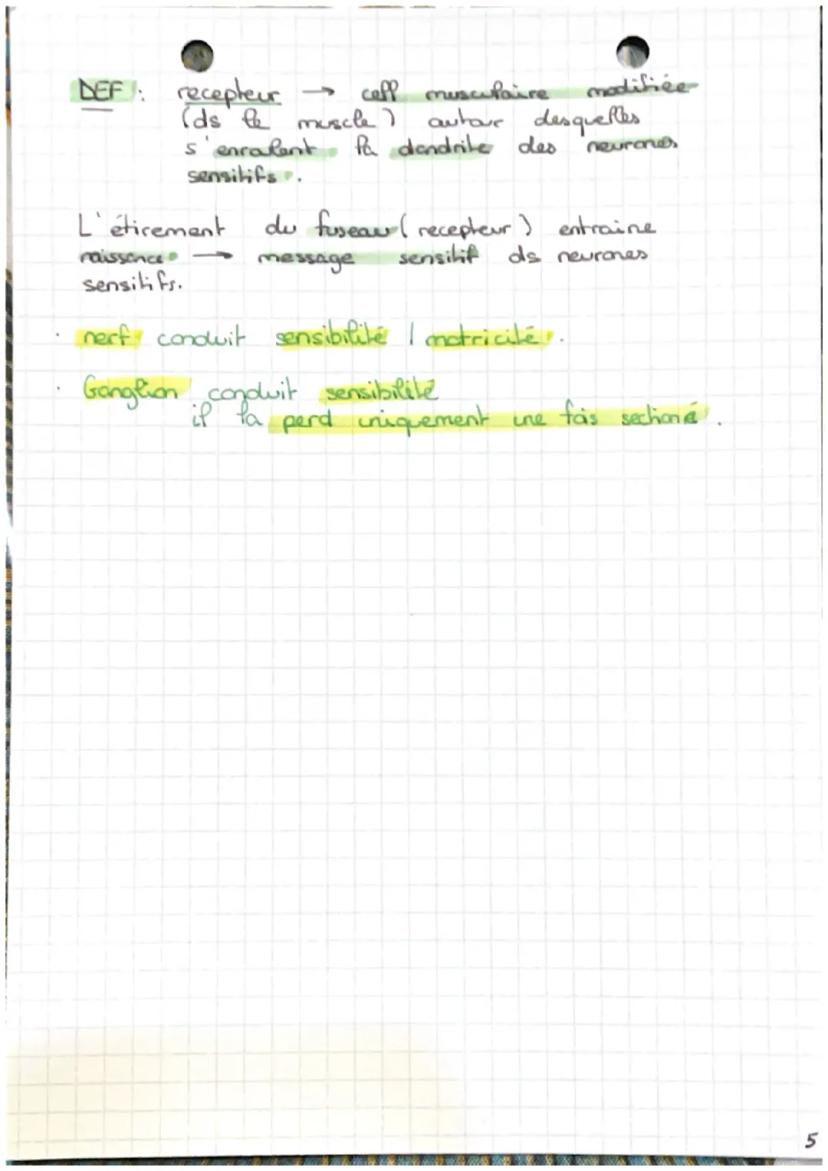 DEF : recepteur → cell musculaire modifiée
(ds le muscle) autour desquelles
s'enroulent la dendrite des neurones
sensitifs.
L'étirement du fuseau (recepteur) entraine
naissance → message sensitif ds neurones
sensitifs.
· nerf conduit sensibilité / motricité.
· Ganglion conduit sensibilité
il la perd uniquement une fois sectioné.
5